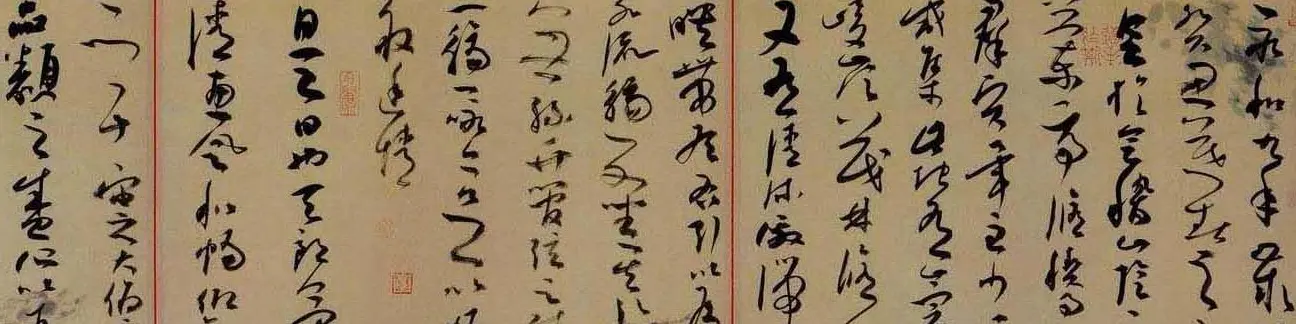 永和九年歲
癸丑暮春之
會於會稽山陰
蘭亭脩稧事
羣賢畢至少
咸集此地有崇
峻嶺茂林脩
又有清流激湍
暎帶左右引以為
流觴曲水列坐其
雖無絲竹管弦之
一觴一詠亦足以
叙幽情
是日也天朗氣
清惠風和暢仰
宇宙之大俯
品類之盛所以